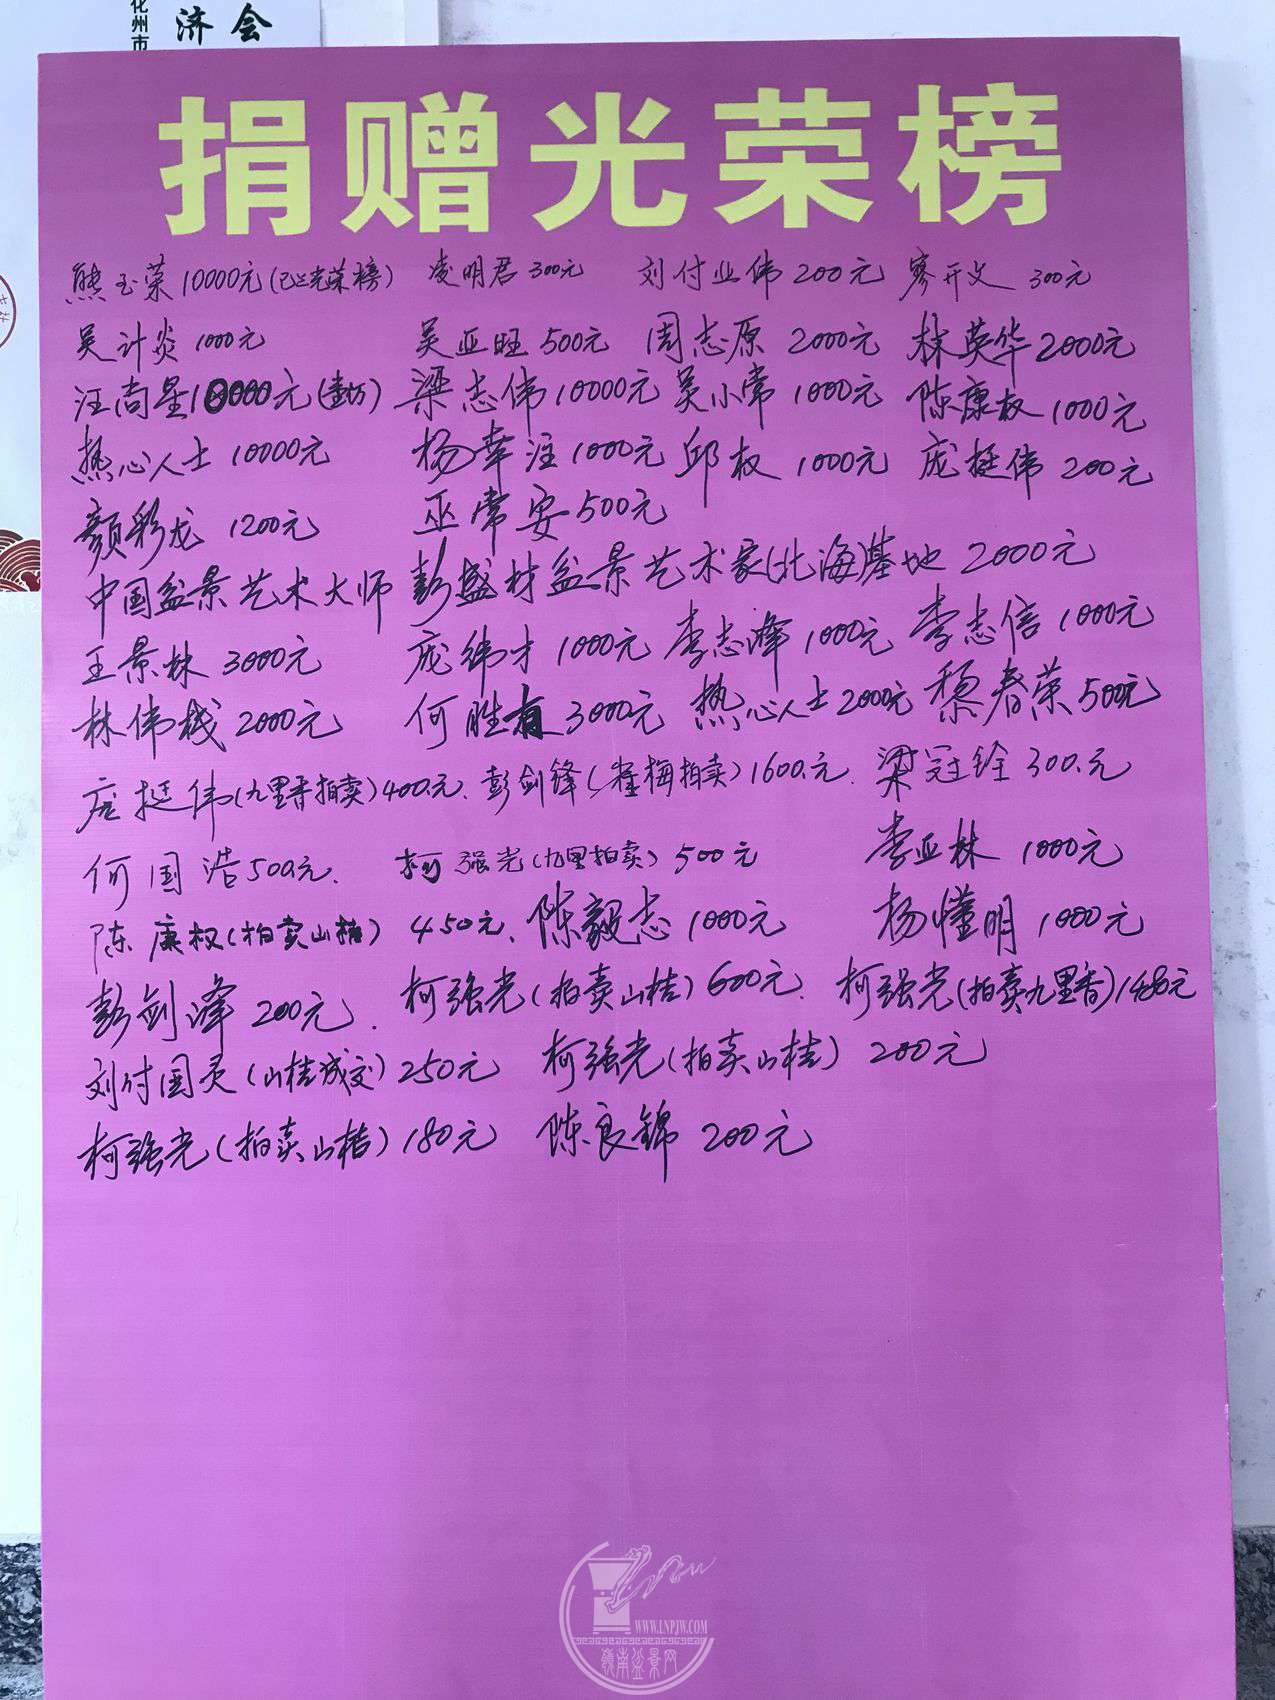 化州市
济会
捐赠光荣榜
熊玉荣 10000元(已上光荣榜) 凌明君 300元 刘付业伟 200元 廖开文 300元
吴计炎 1000元 吴亚旺 500元 周志原 2000元 林英华 2000元
汪尚星 10000元 梁志伟 10000元 吴小常 1000元 陈康权 1000元
热心人士 10000元 杨幸注 1000元 邱权 1000元 庞挺伟 200元
颜彩龙 1200元 巫常安 500元
中国盆景艺术大师彭盛材盆景艺术家(北海)基地 2000元
王景林 3000元 庞纬才 1000元 李志峰 1000元 李志信 1000元
林伟栈 2000元 何胜有 3000元 热心人士 2000元 黎春荣 500元
庞挺伟(九里香拍卖) 400元. 彭剑锋(雀梅拍卖) 1600元. 梁冠铨 300元
何国浩 500元. 柯强光(九里拍卖) 500元 李亚林 1000元
陈康权(拍卖山桔) 450元. 陈毅志 1000元 杨懂明 1000元
彭剑峰 200元. 柯强光(拍卖山桔) 600元. 柯强光(拍卖九里香) 1480元
刘付国灵(山桔成交) 250元 柯强光(拍卖山桔) 200元
柯强光(拍卖山桔) 180元 陈良锦 200元
WWW.LNPJW.COM
岭南盆景网